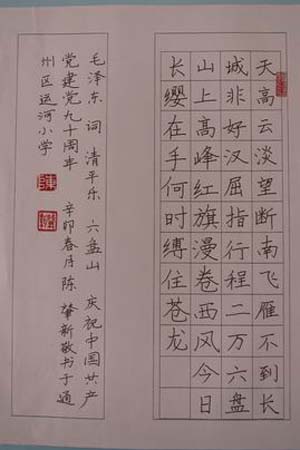 天高云淡望断南飞雁不到长
城非好汉屈指行程二万六盘
山上高峰红旗漫卷西风今日
长缨在手何时缚住苍龙
毛泽东 词 清平乐 六盘山 庆祝中国共产
党建党九十周年 辛卯春月陈肇新敬书于通
州区运河小学